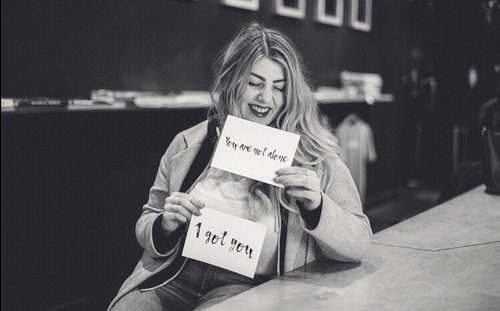 You are not alone
I got you